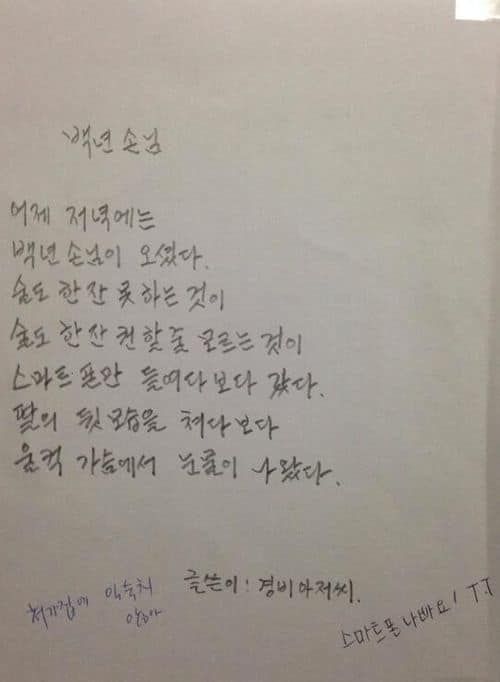 백년손님
어제 저녁에는
백년손님이 오셨다.
술도 한잔 못하는 것이
술도 한잔 권할줄 모르는 것이
스마트폰만 들여다보다 갔다.
딸의 뒷모습을 쳐다보다
울컥 가슴에서 눈물이 나왔다.
글쓴이: 경비아저씨.
처가집에 익숙치
않아
스마트폰 나빠요! T.T